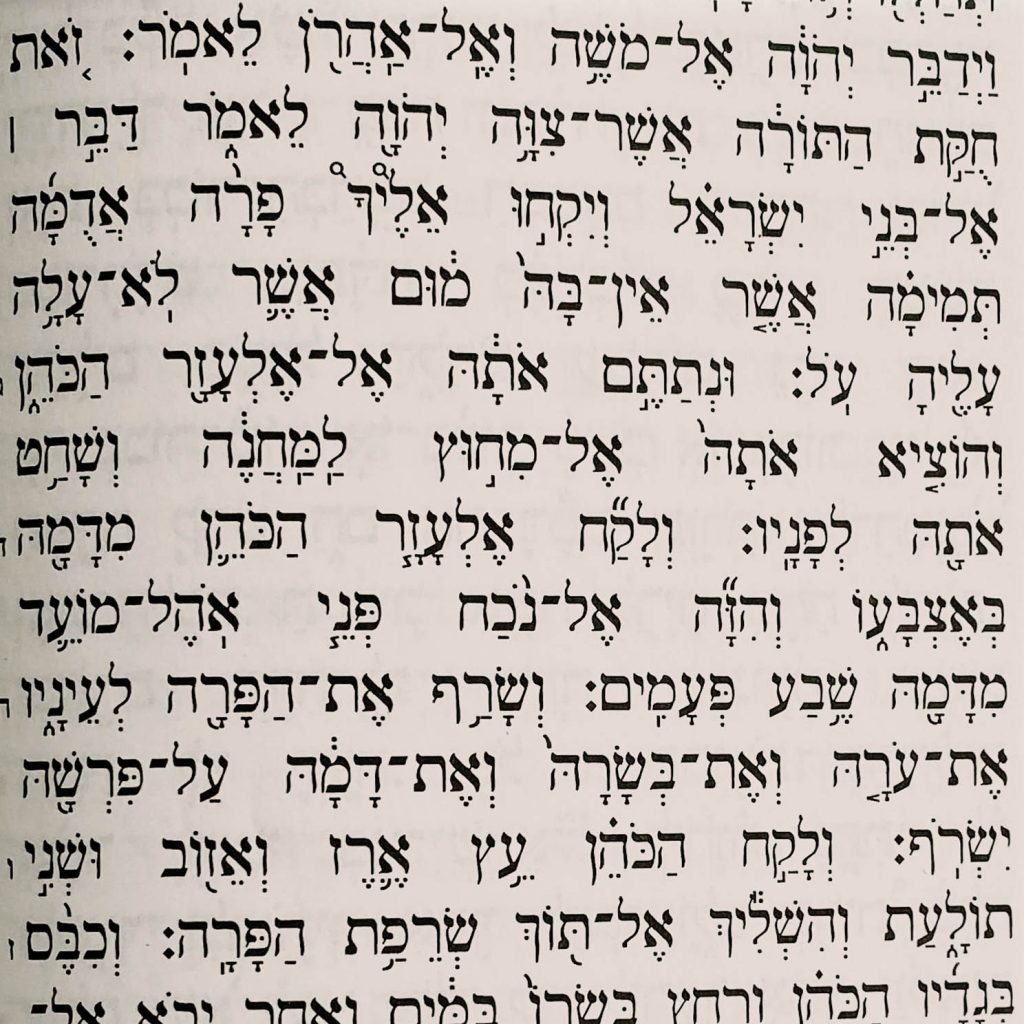 וַיְדַבֵּ֣ר יְהוָ֔ה אֶל־מֹשֶׁ֥ה וְאֶֽל־אַהֲרֹ֖ן לֵאמֹֽר׃ זֹ֚את
חֻקַּ֣ת הַתּוֹרָ֔ה אֲשֶׁר־צִוָּ֥ה יְהוָ֖ה לֵאמֹ֑ר דַּבֵּ֣ר ׀
אֶל־בְּנֵ֣י יִשְׂרָאֵ֗ל וְיִקְח֣וּ אֵלֶ֩יךָ֩ פָרָ֨ה אֲדֻמָּ֜ה
תְּמִימָ֗ה אֲשֶׁ֤ר אֵֽין־בָּהּ֙ מ֔וּם אֲשֶׁ֛ר לֹֽא־עָלָ֥ה
עָלֶ֖יהָ עֹֽל׃ וּנְתַתֶּ֣ם אֹתָ֔הּ אֶל־אֶלְעָזָ֖ר הַכֹּהֵ֑ן
וְהוֹצִ֤יא אֹתָהּ֙ אֶל־מִח֣וּץ לַֽמַּחֲנֶ֔ה וְשָׁחַ֥ט
אֹתָ֖הּ לְפָנָֽיו׃ וְלָקַ֞ח אֶלְעָזָ֧ר הַכֹּהֵ֛ן מִדָּמָ֖הּ
בְּאֶצְבָּע֑וֹ וְהִזָּ֞ה אֶל־נֹ֨כַח פְּנֵ֧י אֹֽהֶל־מוֹעֵ֛ד
מִדָּמָ֖הּ שֶׁ֥בַע פְּעָמִֽים׃ וְשָׂרַ֥ף אֶת־הַפָּרָ֖ה לְעֵינָ֑יו
אֶת־עֹרָ֤הּ וְאֶת־בְּשָׂרָהּ֙ וְאֶת־דָּמָ֔הּ עַל־פִּרְשָׁ֖הּ
יִשְׂרֹֽף׃ וְלָקַ֣ח הַכֹּהֵ֗ן עֵ֥ץ אֶ֛רֶז וְאֵז֖וֹב וּשְׁנִ֣י
תוֹלָ֑עַת וְהִשְׁלִ֕יךְ אֶל־תּ֖וֹךְ שְׂרֵפַ֥ת הַפָּרָֽה׃ וְכִבֶּ֨ס
בְּגָדָ֜יו הַכֹּהֵ֗ן וְרָחַ֤ץ בְּשָׂרוֹ֙ בַּמַּ֔יִם וְאַחַ֖ר יָבֹ֣א אֶל־